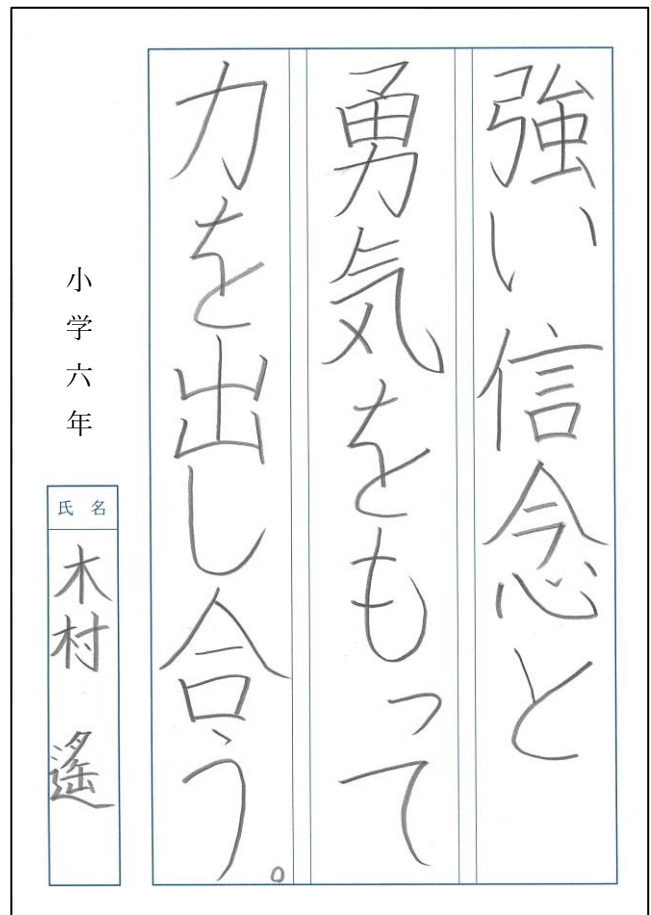 強い信念と
勇気をもって
力を出し合う。
小学六年
氏名
木村 遙